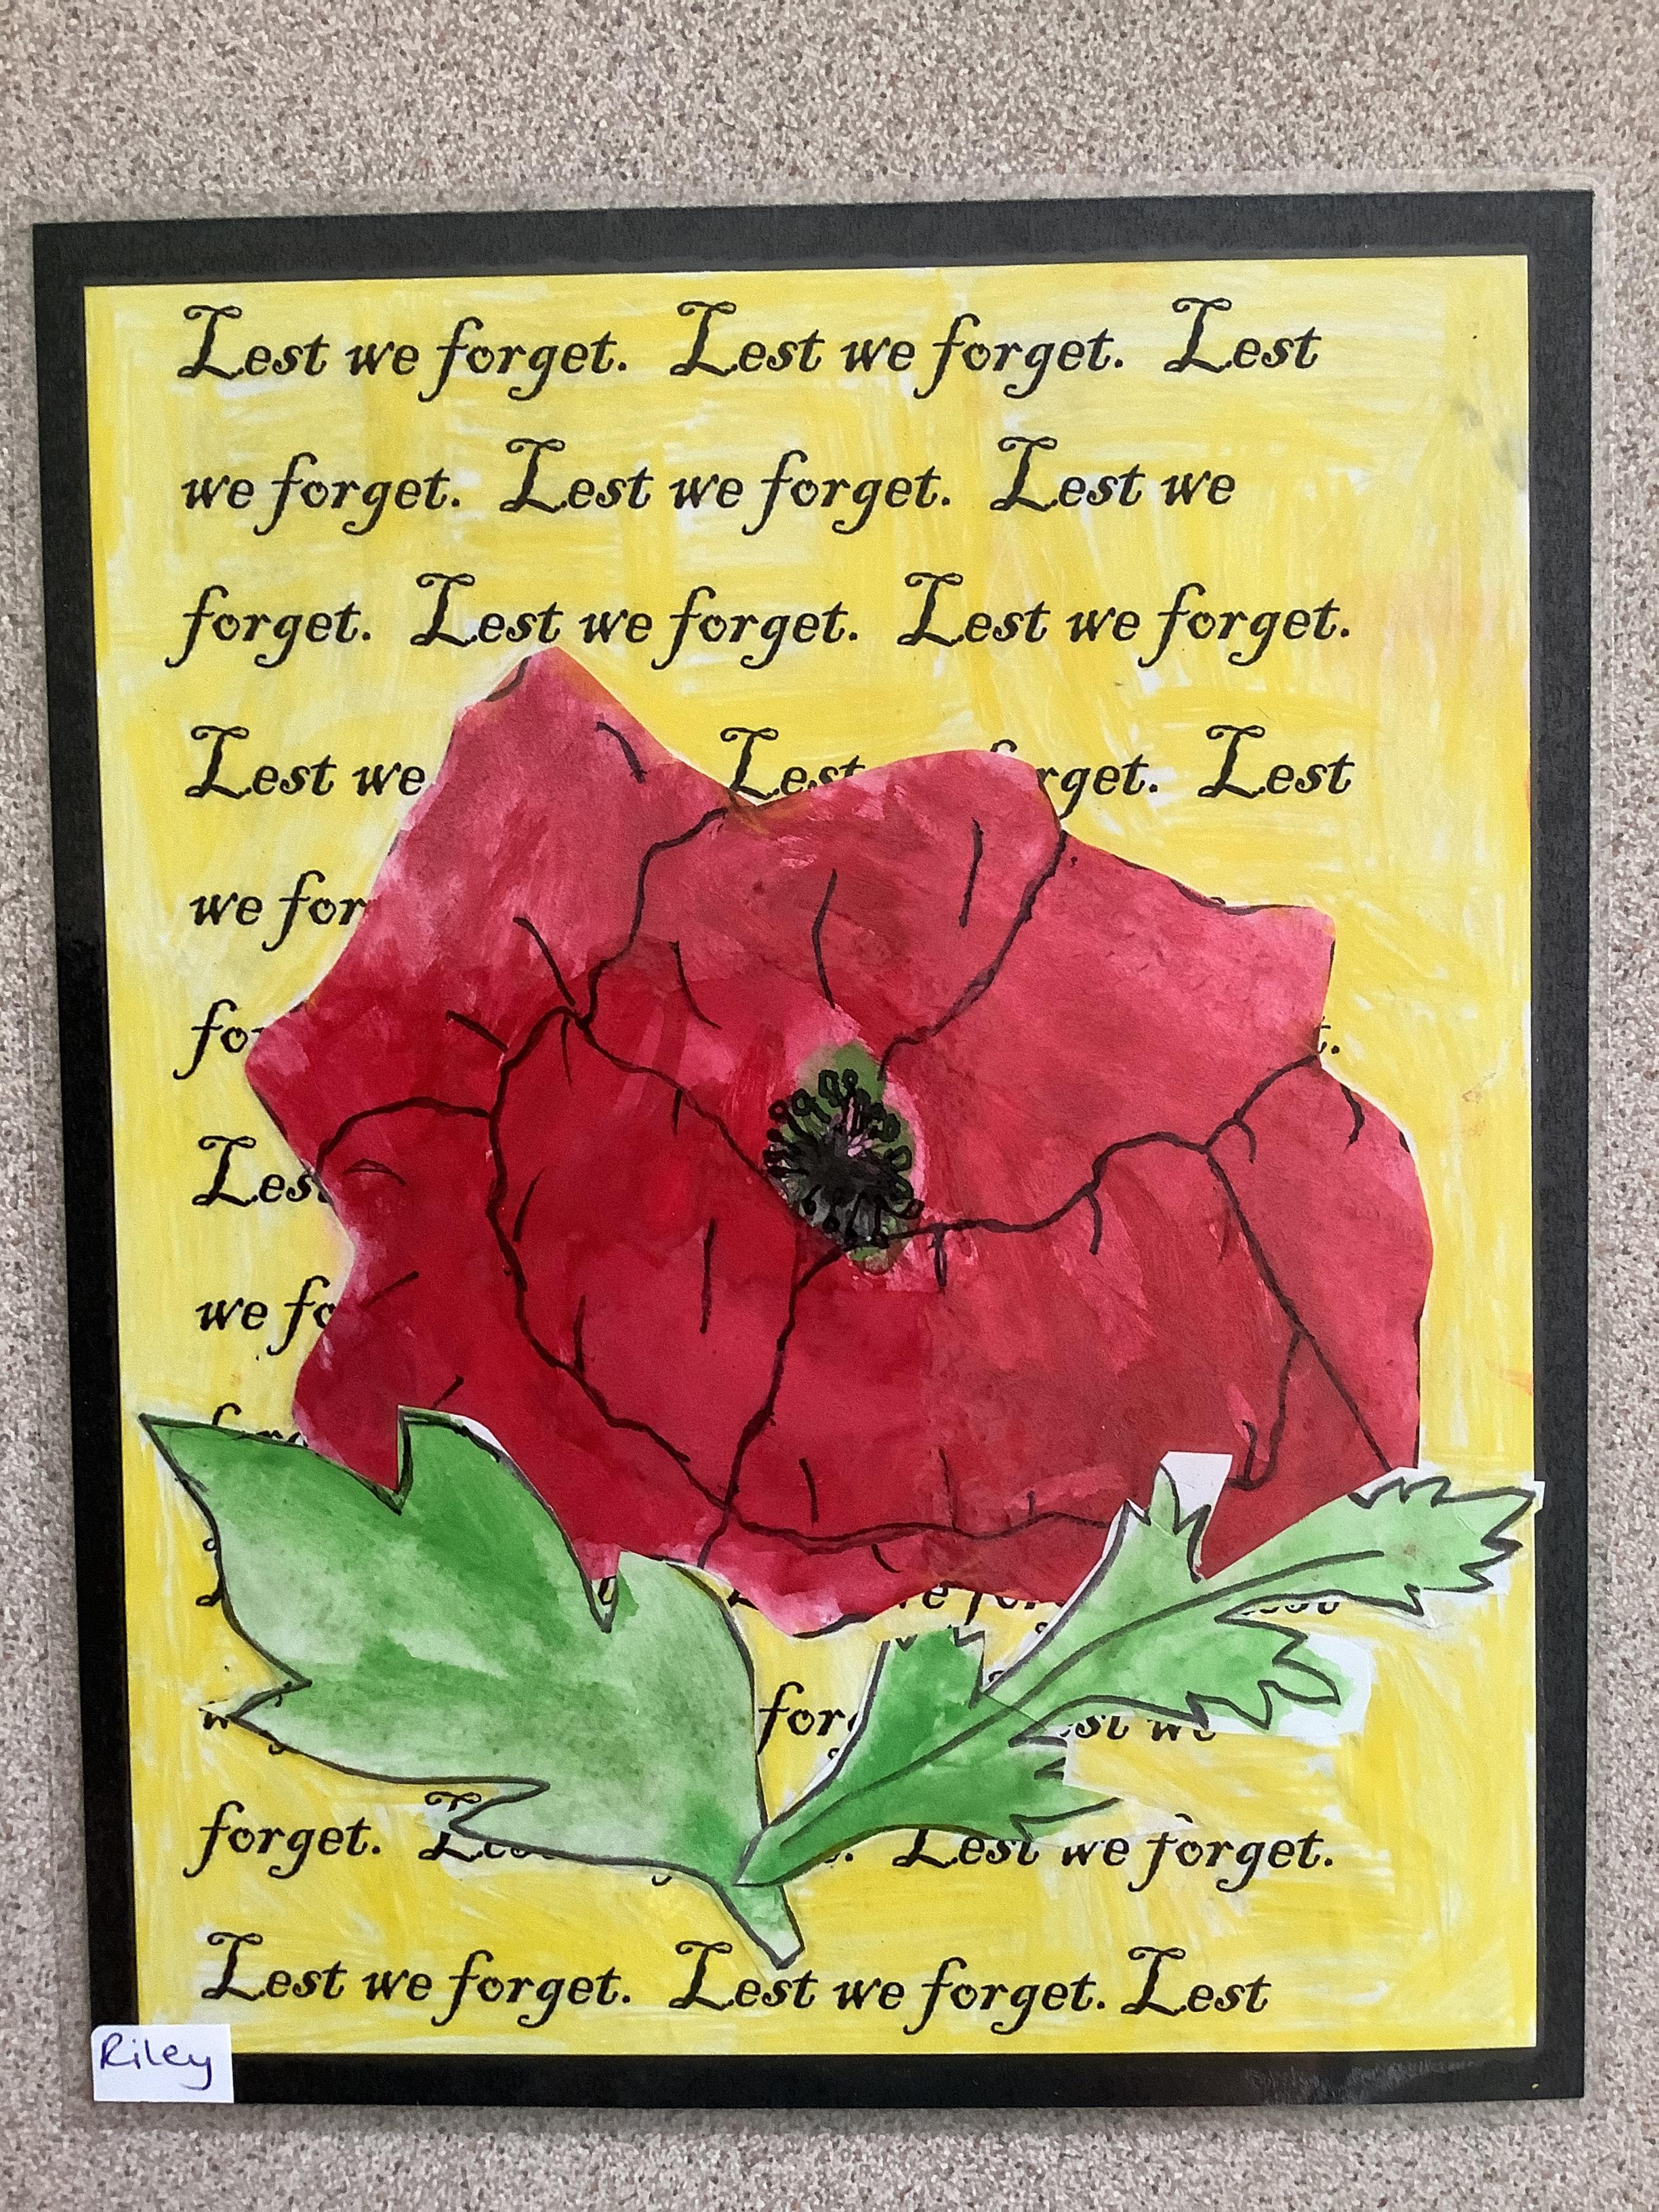 Lest we forget. Lest we forget. Lest
we forget. Lest we forget. Lest we
forget. Lest we forget. Lest we forget.
Lest we Lest rget. Lest
we for
for t.
Lest
we fo
forg
we for est
forg est we
forget. Lest we forget.
Lest we forget. Lest we forget. Lest
Riley